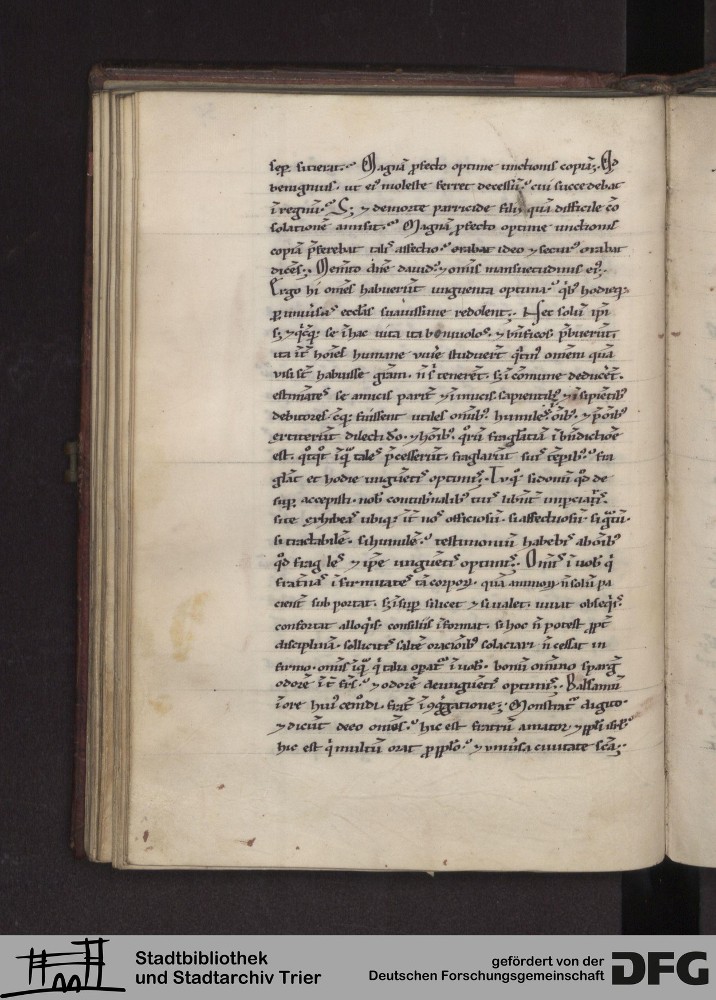 sep sitierat. Magnā ꝓfecto optime unctionis copiā. Qd
benignius. ut ei moleste ferret decessū. cui succedebat
ī regnū. Sꝫ ⁊ de morte parricide filii quā difficile cō
solationē amisit. Magnā ꝓfecto optime unctionis
copiā p̄ferebat talis affectio. orabat ideo ⁊ securus orabat
dicēs. Memto dn̄e dauid. ⁊ omīs mansuetudinis ei.
Ergo hi om̄es habuerūt unguenta optima. qͥbꝰ hodieqꝫ
ꝑ uniūsas ecclīas suauissime redolent. Nec solū ip̄i
sꝫ ⁊ qͥcūqꝫ se ī hac uita ita beniuolos. ⁊ bn̄ficos p̄buerūt.
ita īt hoīes humane uiue studuert̄
uisi sūt habuisse gratiam. n̄ sͥ tenerēt. sꝫ ī cōmune deducēt.
estimātes se amicis parit̄ ⁊ īimicis. sapientibꝫ ⁊ īsipiētibꝰ
debitores. fuissent utiles omībꝰ humiles ī oībꝰ. ⁊ p̄ oībꝰ
extiterūt dilecti dō. ⁊ hoībꝰ. qͦrū fraglātia ī bn̄dictiōe
est. qͦtqͦt īqͣ tales p̄cesserūt. fraglarūt suis tēpibꝰ. fra
glāt et hodie unguētis optimis. Tu qͦꝫ si donū qͦd de
suꝑ accepisti. nobis contubnalibꝰ tuis libnt̄ imptiaris.
si te exhibeas ubiqꝫ īt nos officiosū. si affectuosū. si gͣtū.
si tractabilē. si humilē. testimoniū habebis ab oībꝰ
qͦd fragles ⁊ ip̄e unguētis optimis. Omīs ī uobis qͥ
frat̄nas ī firmitates tā corpoꝝ. quā animoꝝ n̄ solū pa
cient̄ supportat. sꝫ ī suꝑ si licet ⁊ si ualet. iuuat obseqͥs.
confortat alloqͥis. consiliis īformat. si hoc n̄ potest ꝓpt̄
disciplinā. sollicitis saltē oracionibꝰ solaciari n̄ cessat in
firmo. omīs īqͣ qͥ talia opat̄ ī uobis. bonū omīno spargit
odorē īt̄ fr̄es. ⁊ odorē de unguētis optimis. Balsamū
ī ore huiꝰ cemōdi. frat̄ ī ꝯgregatione. Monstrat̄ digito.
⁊ dicūt de eo om̄es. hic est fratrū amator ⁊ ppli isrl̄.
hic est qͥ multū orat ꝓ pplo. ⁊ uniūsa ciuitate scā.
Stadtbibliothek
und Stadtarchiv Trier
gefördert von der
Deutschen Forschungsgemeinschaft
DFG